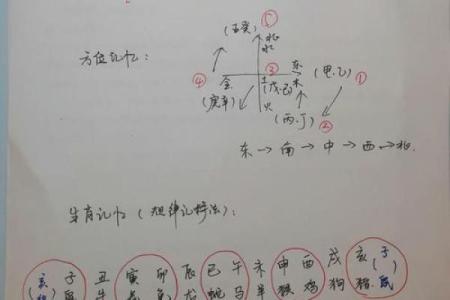 ⑤
(壬癸)
北
水
方位记忆：
③
东
(甲.乙)
①
④
金
土
木
(戊.己)
(庚辛)
火
(丙.丁)
②
东→南→中→西→北.
生肖记忆(规律记择法)：
亥 子 丑 寅 卯 辰 巳 午 未 申 酉 戌 亥 子
鼠 牛 虎 兔 龙 蛇 马 羊 猴 鸡 狗 猪 鼠